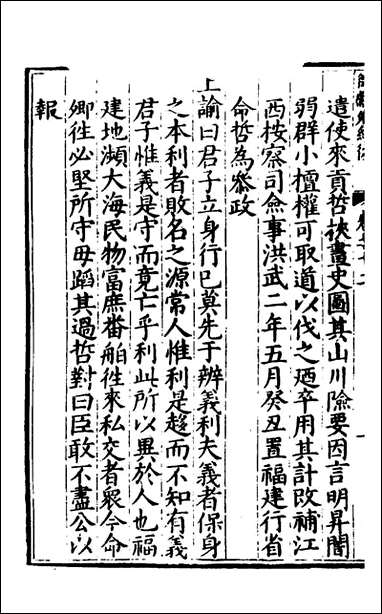 遣使來貢哲挾畫史圖其山川險要因言明昇闇
弱群小擅權可取道以伐之廼卒用其計改補江
西桉察司僉事洪武二年五月癸丑置福建行省
命哲為叅政
上諭曰君子立身行已莫先于辨義利夫義者保身
之本利者敗名之源常人惟利是趍而不知有義
君子惟義是守而竟亡乎利此所以異於人也福
建地瀕大海民物富庶番舶徃來私交者衆今命
卿徃必堅所守毋蹈其過哲對曰臣敢不盡公以
報